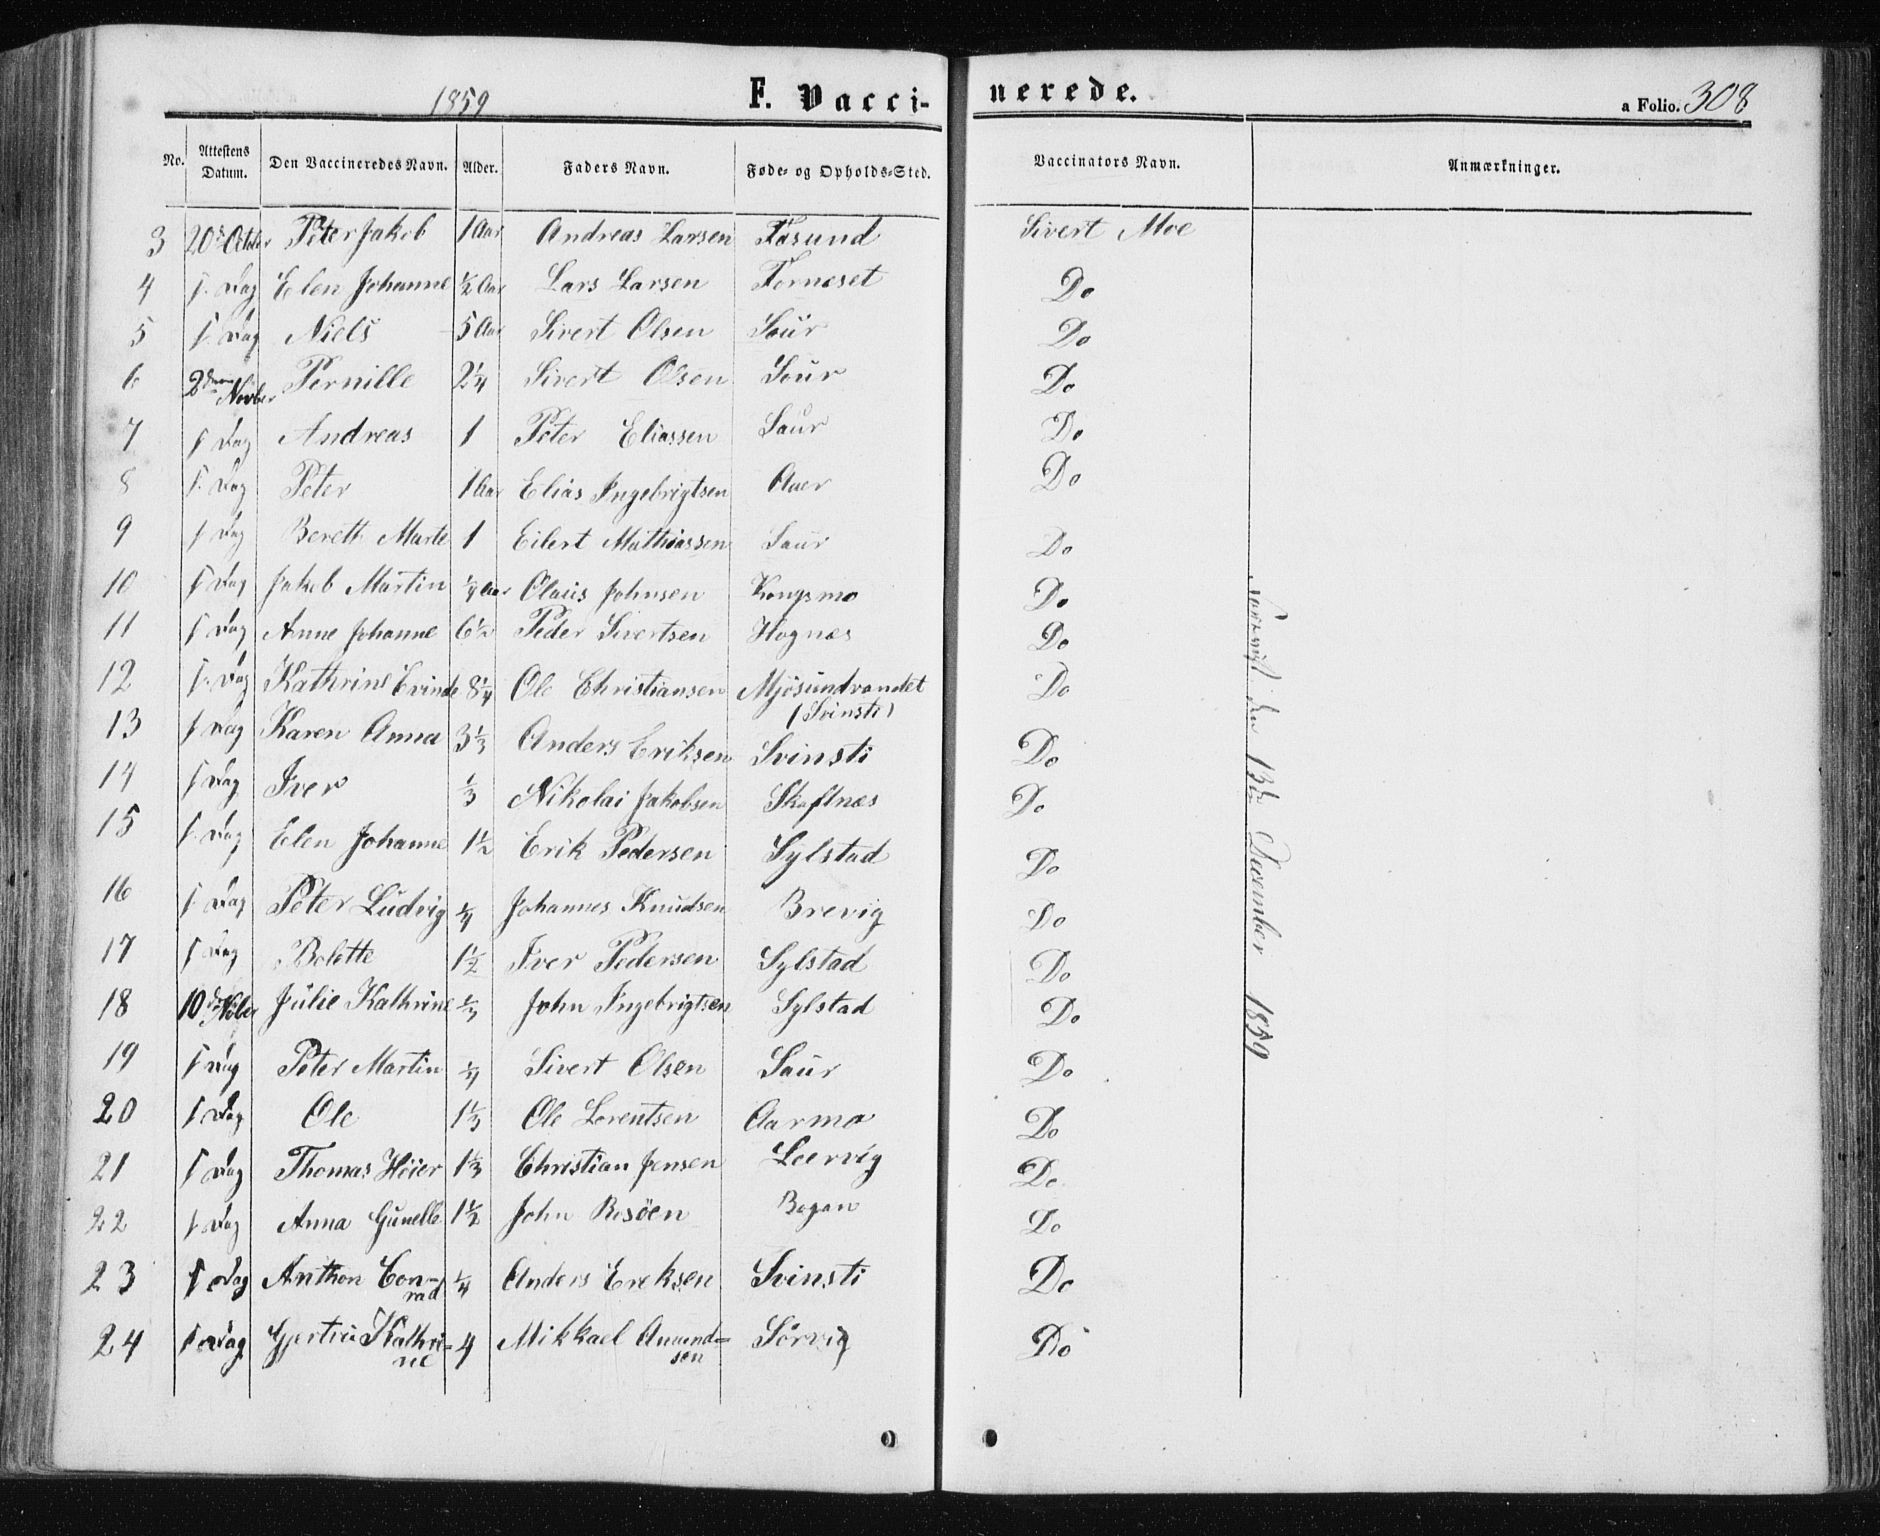 1859 F. Vacci- nerede. a Folio. 308
No. Attestens Datum. Den Vaccineredes Navn. Alder. Faders Navn. Føde- og Opholds-Sted. Vaccinators Navn. Anmærkninger.
3 20de October Peter Jakob 1 Aar Andreas Larsen Fasund Sivert Moe
4 s. Dag Elen Johanne 1/2 Aar Lars Larsen Fornæset Do
5 s. Dag Niels 5 Aar Sivert Olsen Saur Do
6 2den Novber Pernille 2 1/4 Sivert Olsen Saur Do
7 s. Dag Andreas 1 Peter Eliassen Saur Do
8 s. Dag Peter 1 Aar Elias Ingebrigtsen Auer Do
9 s. Dag Bereth Marte 1 Eilert Mathiassen Saur Do
10 s. Dag Jakob Martin 1/4 Aar Olaus Johnsen Kongsmo Do
11 s. Dag Anne Johanne 6 1/2 Peder Sivertsen Hognæs Do
12 s. Dag Kathrine Evinde 8 1/4 Ole Christiansen Mjøsundvandet Do
(Svinsti)
13 s. Dag Karen Anna 3 1/3 Anders Eriksen Svinsti Do
14 s. Dag Iver 1/3 Nikolai Jakobsen Skaftnæs Do
15 s. Dag Elen Johanne 1 1/2 Erik Pedersen Sylstad Do
16 s. Dag Peter Ludvig 1/4 Johannes Knudsen Brevig Do
17 s. Dag Bolette 1 1/2 Iver Pedersen Sylstad Do
18 10de Nober Julie Kathrine 1/3 John Ingebrigtsen Sylstad Do
19 s. Dag Peter Martin 1/4 Sivert Olsen Saur Do
20 s. Dag Ole 1 1/3 Ole Lorentsen Aarmo Do
21 s. Dag Thomas Høier 1 1/3 Christian Jensen Leervig Do
22 s. Dag Anna Gunelle 1 1/2 John Risøen Bogan Do
23 s. Dag Anthon Con- 1/4 Anders Ereksen Svinsti Do
rad
24 s. Dag Gjertru Kathri- 4 Mikkael Amund= Sørvig Do
ne sen
den 13de December 1859